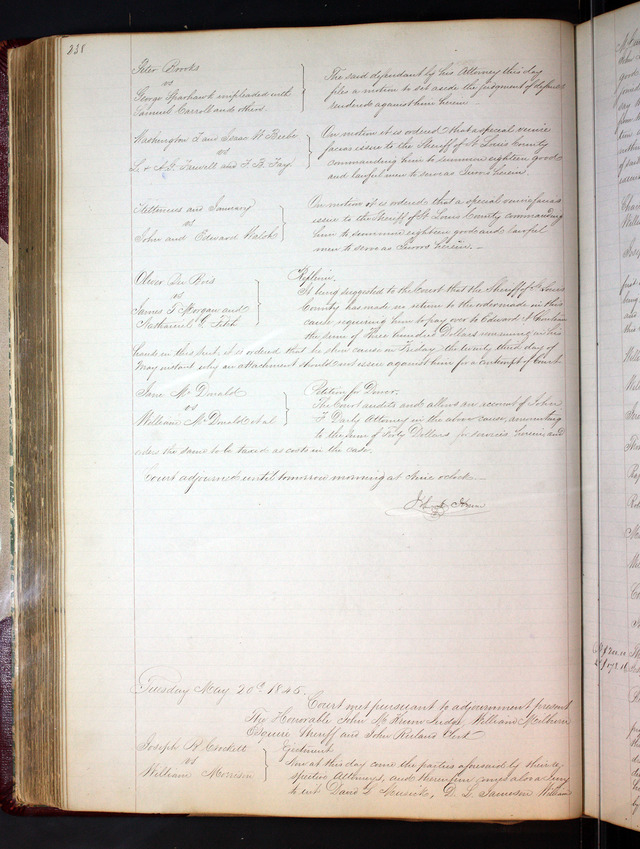 238
Peter Brooks
vs
George Sparhawk impleaded with
Samuel Carroll and others
The said defendant by his Attorney this day
files a motion to set aside the judgment of default
rendered against him herein
Washington and Isaac W
vs
L. & A.G. Farwell and F. B. Fay
On motion it is ordered that a special venire
facias issue to the Sheriff of St Louis County
commanding him to summon eighteen good
and lawful men to serve as Jurors herein.
and January
vs
John and Edward Walsh
On motion it is ordered that a special venire facias
issue to the Sheriff of St Louis County commanding
him to summon eighteen good and lawful
men to serve as Jurors herein. —
Oliver Du Bois
vs
James S Morgan and
Nathaniel E
Replevin.
It being suggested to the Court that the Sheriff of St Louis
County has made no return to the order made in this
cause requiring him to pay over to Edward
the sum of Three hundred Dollars remaining in his
hands in this suit, it is ordered that he shew cause on Friday the twenty third day of
May instant why an attachment should not issue against him for a contempt of Court
Jane McDonald
vs
William McDonald et al
Petition for Dower.
The Court audits and allows an account of John
F Darby Attorney in the above cause, amounting
to the sum of Fifty Dollars for services herein, and
orders the same to be taxed as costs in the case.
Court adjourned until tomorrow morning at Nine o'clock —
Tuesday May 20th 1845.
Court met pursuant to adjournment present
The Honorable John M Krum Judge, William Milburn
Esquire Sheriff and John Ruland Clerk
Joseph R Crockett
vs
William Morrison
Ejectment
Now at this day come the parties aforesaid by their re
spective Attorneys, and thereupon comes also a Jury
to wit David L D. L. Jameson William